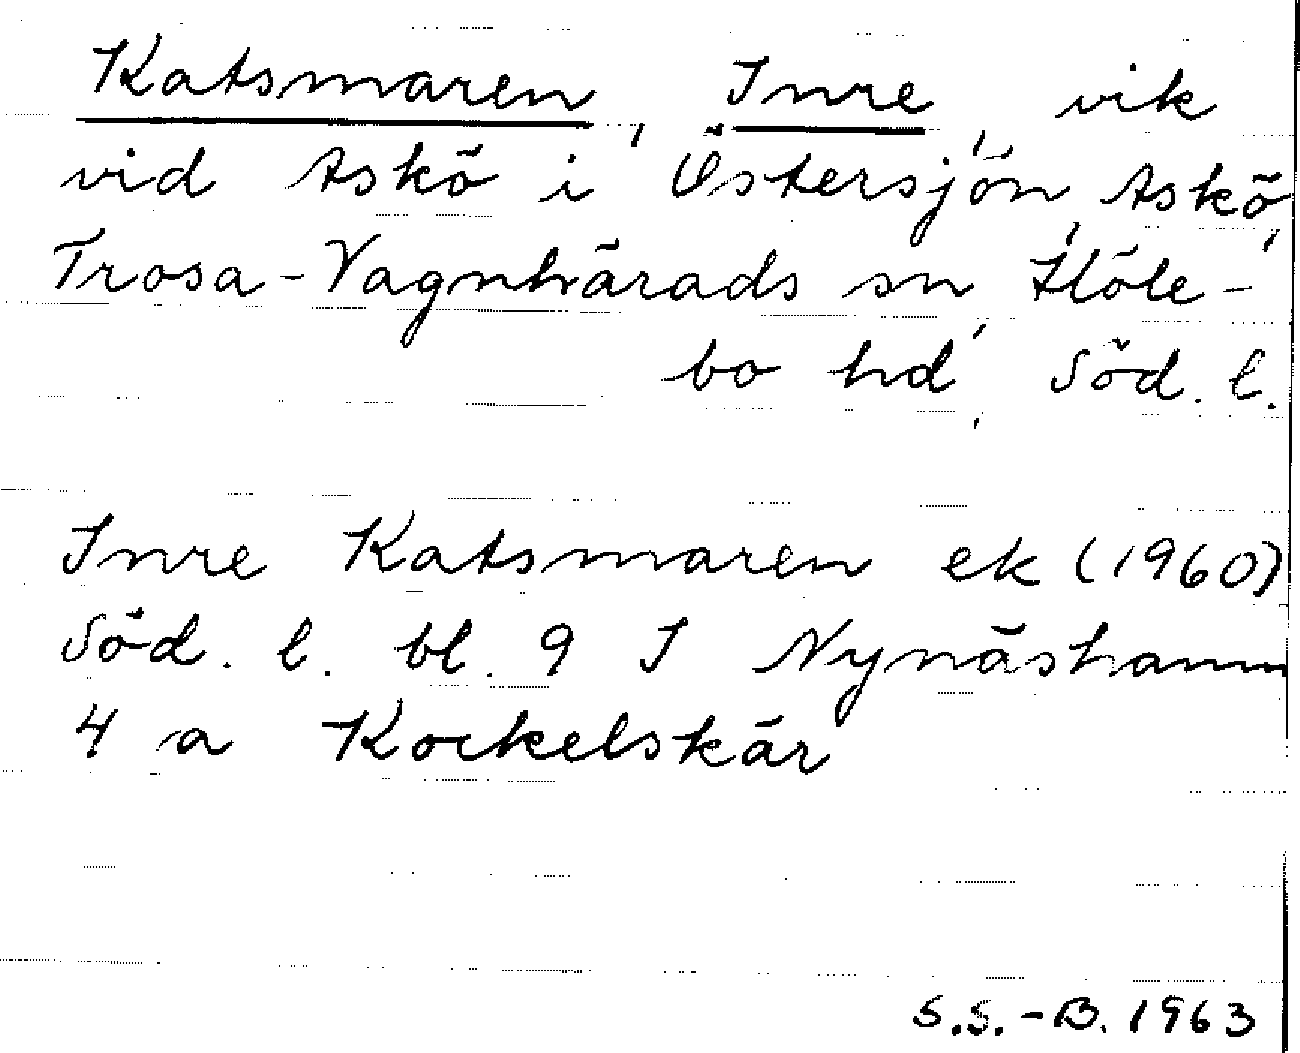 Katsmaren, Inre, vik
vid Askö i Östersjön, Askö,
Trosa-Vagnhärads sn, Höle-
bo hd, Söd. l.
Inre Katsmaren ek (1960)
Söd. l. bl. 9 I Nynäshamn
4 a Kockelskär
S.S.-B. 1963